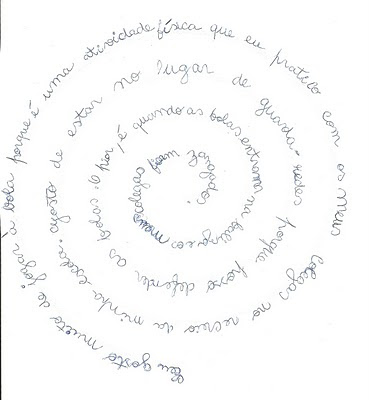 Eu gosto muito de jogar à bola porque é uma atividade física que eu pratico com os meus colegas no recreio da minha escola. agosto de estar no lugar de guarda-redes porque posso defender as bolas. O pior, é quando as bolas entram na e os meus colegas ficam zangados.